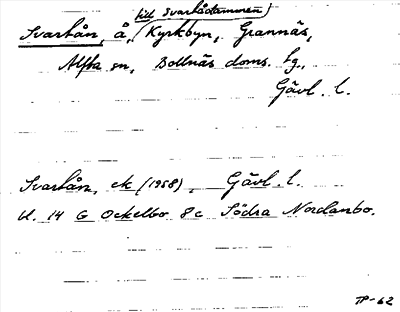 till Svartådammen
Svartån, å, (Kyrkbyn, Grannäs,
Alfta sn, Bollnäs doms. tg.,
Gävl. l.
Svartån, ek (1958), Gävl. l.
Ut. 14 G Ockelbo 8c Södra Nordanbo.
TP-62